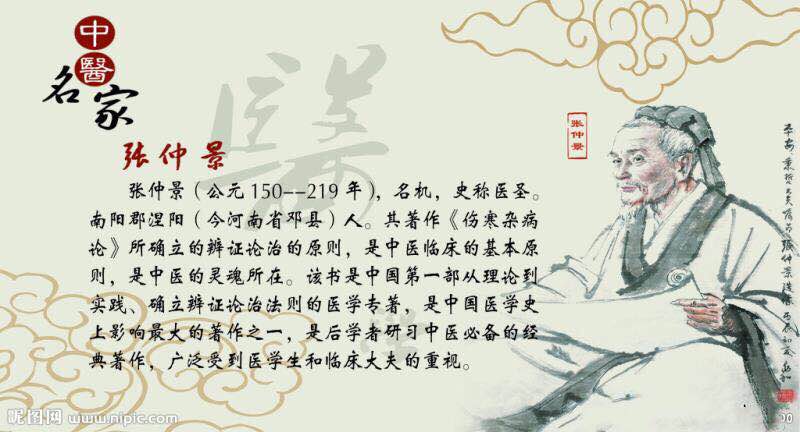 中醫
名家
張仲景
张仲景(公元150--219年),名机,史称医圣。
南阳郡涅阳(今河南省邓县)人。其著作《伤寒杂病
论》所确立的辨证论治的原则,是中医临床的基本原
则,是中医的灵魂所在。该书是中国第一部从理论到
实践、确立辨证论治法则的医学专著,是中国医学史
上影响最大的著作之一,是后学者研习中医必备的经
典著作,广泛受到医学生和临床大夫的重视。
醫
张仲景
昵图网 www.nipic.com